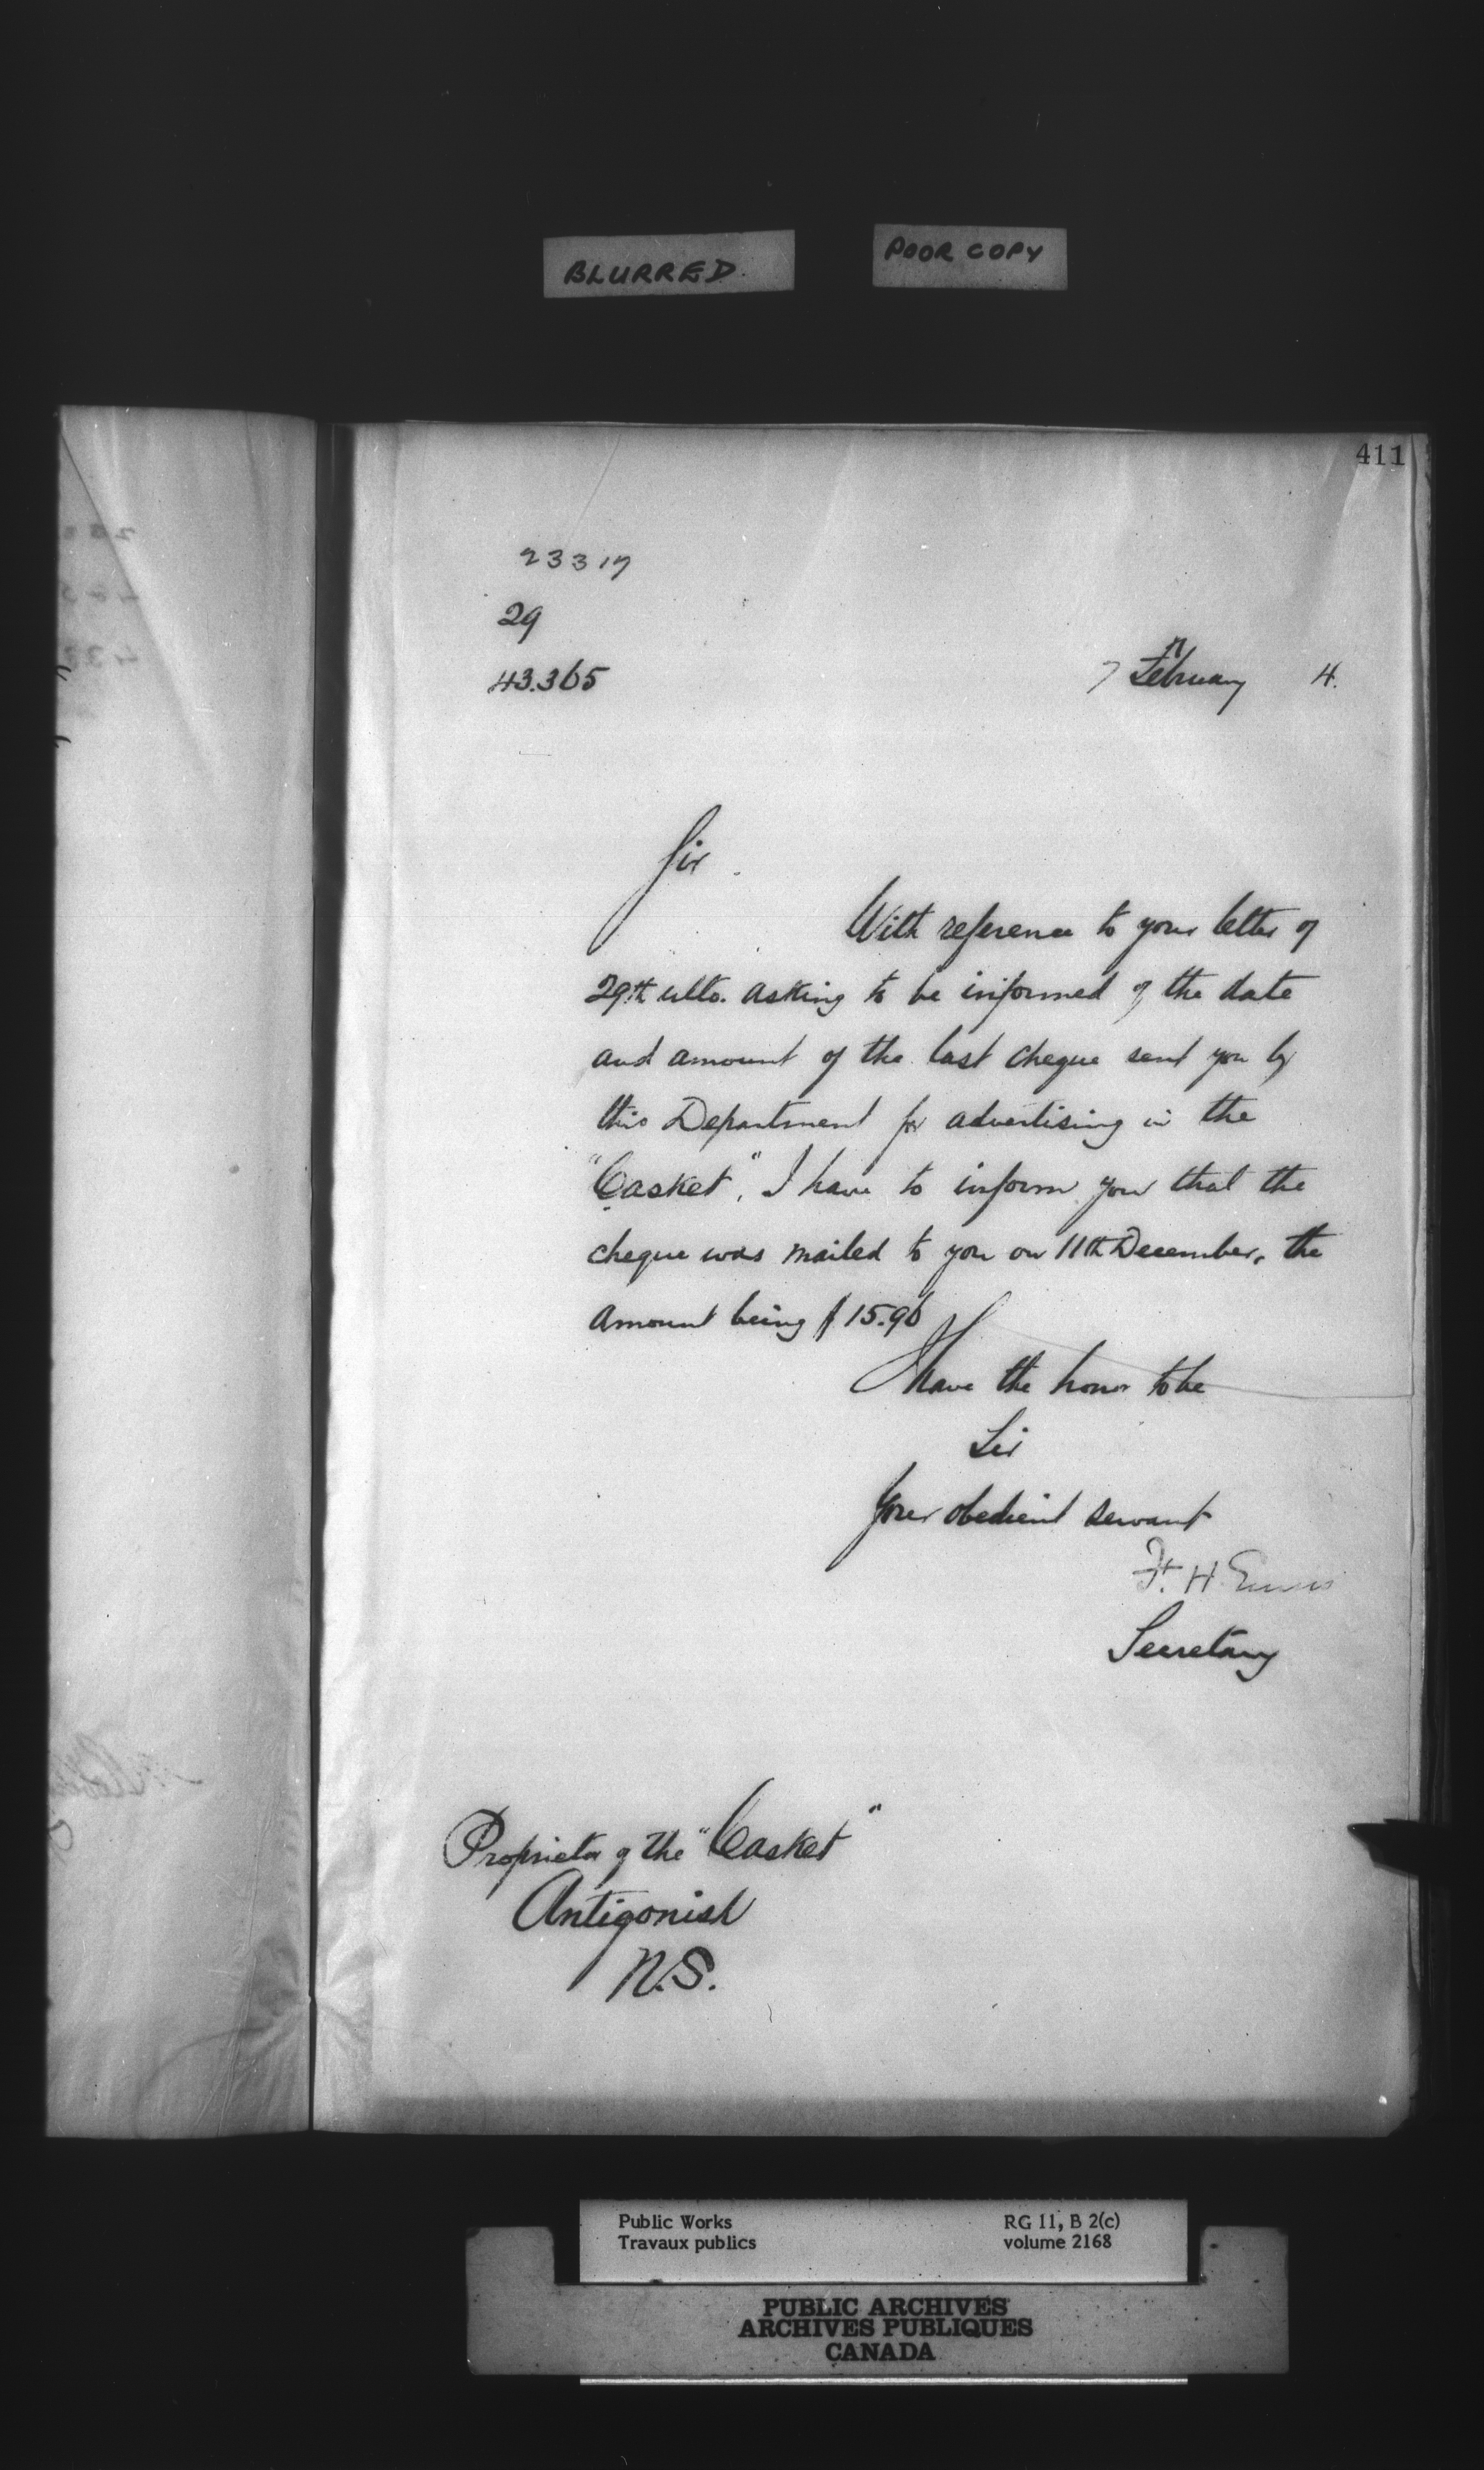 BLURRED.
POOR COPY
411
23317
29
43.365
7 February 4.
Sir
With reference to your letter of
29th ulto. asking to be informed of the date
and amount of the last cheque sent you by
this Department for advertising in the
"Casket", I have to inform you that the
cheque was mailed to you on 11th December, the
amount being $15.96
I have the honor to be
Sir
Your obedient servant
F. H. Ennis
Secretary
Proprietor of the "Casket"
Antigonish
N.S.
Public Works
Travaux publics
RG 11, B 2(c)
volume 2168
PUBLIC ARCHIVES
ARCHIVES PUBLIQUES
CANADA